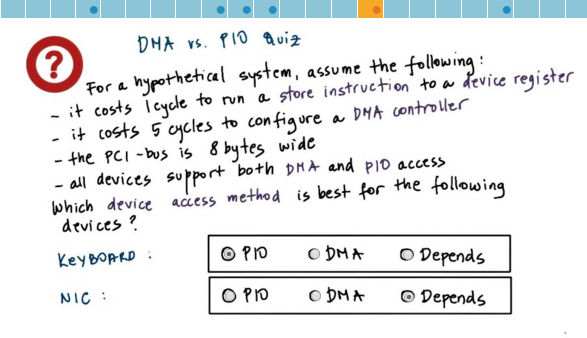 ?
DMA vs. PIO Quiz
For a hypothetical system, assume the following:
- it costs 1 cycle to run a store instruction to a device register
- it costs 5 cycles to configure a DMA controller
- the PCI-bus is 8 bytes wide
- all devices support both DMA and PIO access
Which device access method is best for the following
devices?
KEYBOARD: PIO DMA Depends
NIC: PIO DMA Depends